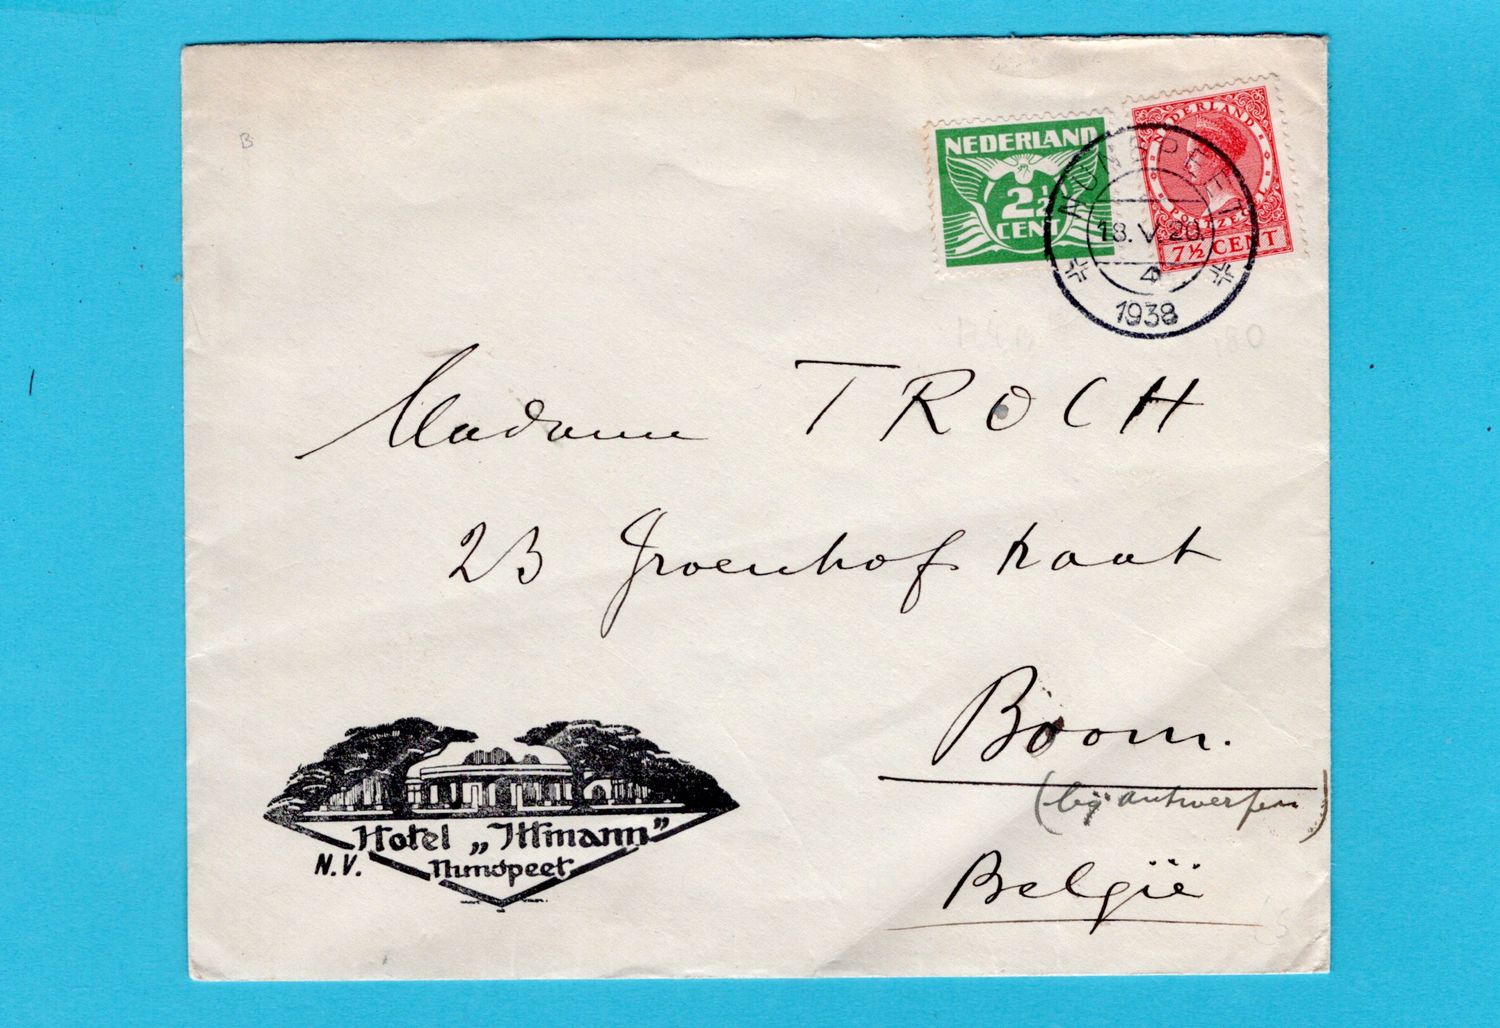 B
NEDERLAND
2½
CENT
NEDERLAND
POSTZEGEL
7½ CENT
NUNSPEET
18.V.20.
4
1938
Madame TROCH
23 Groenhofstraat
Boom.
(bij antwerpen)
België
Hotel „Ittmann”
N.V. Nunspeet